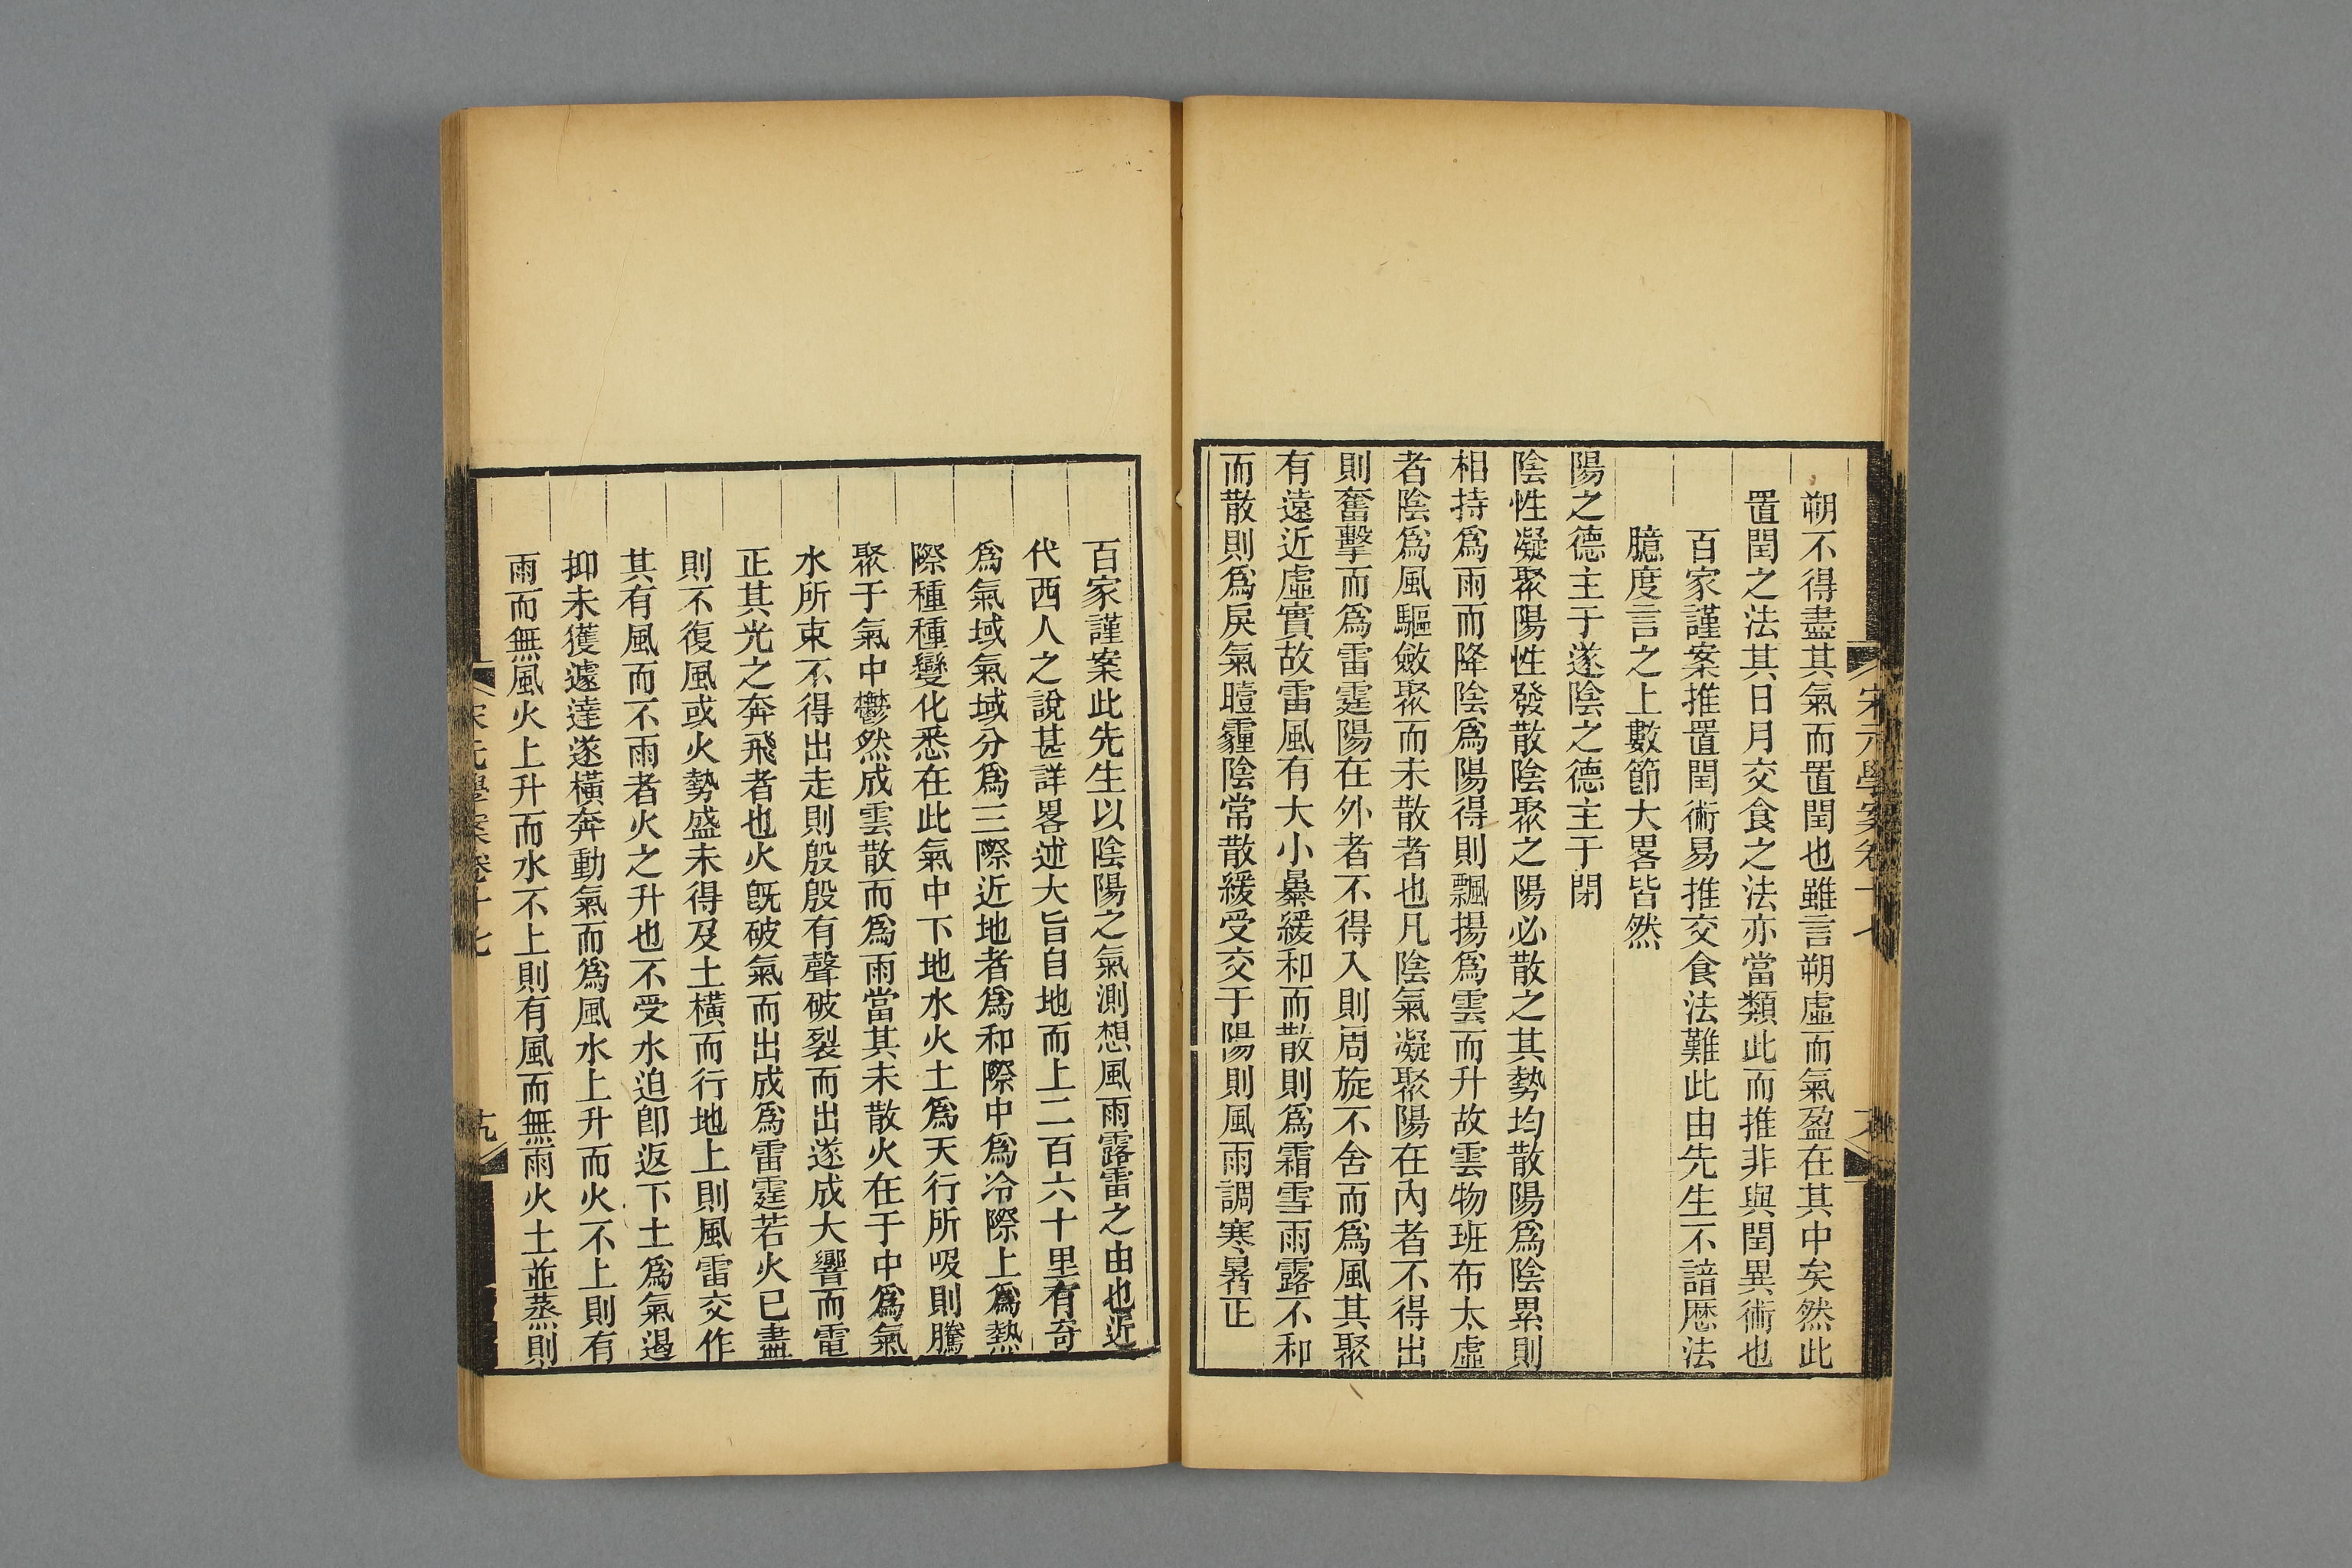 朔不得盡其氣而置閏也雖言朔虛而氣盈在其中矣然此
置閏之法其日月交食之法亦當類此而推非與閏異術也
百家謹案推置閏術易推交食法難此由先生不諳厯法
臆度言之上數節大畧皆然
陽之德主于遂陰之德主于閉
陰性凝聚陽性發散陰聚之陽必散之其勢均散陽爲陰累則
相持爲雨而降陰爲陽得則飄揚爲雲而升故雲物班布太虛
者陰爲風驅斂聚而未散者也凡陰氣凝聚陽在內者不得出
則奮擊而爲雷霆陽在外者不得入則周旋不舍而爲風其聚
有遠近虛實故雷風有大小暴緩和而散則爲霜雪雨露不和
而散則爲戾氣曀霾陰常散緩受交于陽則風雨調寒暑正
宋元學案卷十七
百家謹案此先生以陰陽之氣測想風雨露雷之由也近
代西人之說甚詳畧述大旨自地而上二百六十里有奇
爲氣域氣域分爲三際近地者爲和際中爲冷際上爲熱
際種種變化悉在此氣中下地水火土爲天行所吸則騰
聚于氣中鬱然成雲散而爲雨當其未散火在于中爲氣
水所束不得出走則殷殷有聲破裂而出遂成大響而電
正其光之奔飛者也火旣破氣而出成爲雷霆若火已盡
則不復風或火勢盛未得及土橫而行地上則風雷交作
其有風而不雨者火之升也不受水迫卽返下土爲氣遏
抑未獲遽達遂橫奔動氣而爲風水上升而火不上則有
雨而無風火上升而水不上則有風而無雨火土並蒸則
宋元學案卷十七